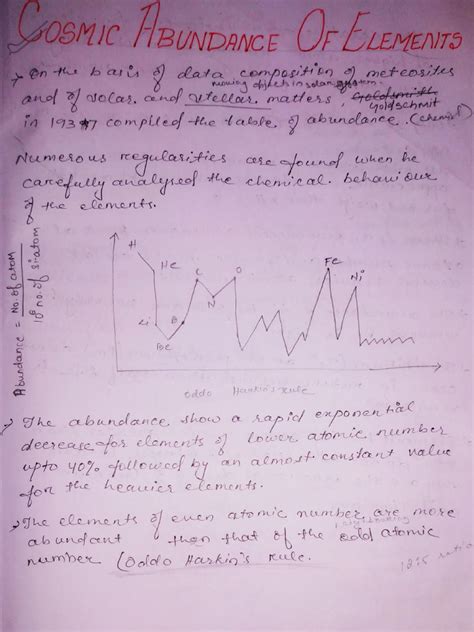 COSMIC ABUNDANCE OF ELEMENTS
On the basis of data composition of meteosites
moving objects in solar system
and of solar and stellar matters, Goldsmith
Goldschmit
in 1937 compiled the table of abundance. (chemist)
Numerous regularities are found when he
carefully analysed the chemical behaviour
of the elements.
Abundance = No. of atom
10⁶ no. of Si atom
H
He
Li
Be
B
C
N
O
Fe
Ni
Oddo Harkin's Rule
The abundance show a rapid exponential
decrease for elements of lower atomic number
upto 40% followed by an almost constant value
for the heavier elements.
The elements of even atomic number are more
abundant than that of the odd atomic
number (Oddo Harkin's rule.